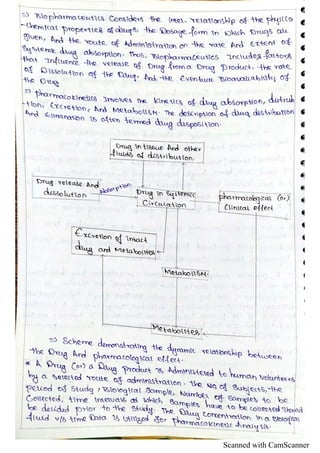 => Biopharmaceutics Considers the inter. relationship of the physico
-chemical properties of drugs. the Dosage form in which Drugs are
given, And the route of Administration on the rate And Extent of
Systemic drug absorption. Thus, Biopharmaceutics Includes factors
that influence the release of Drug from a Drug Product, the rate
of Dissolution of the Drug. And the Eventual Bioavailability of
the Drug
=> pharmacokinetics involves the kinetics of drug absorption, distrib
-tion, Excretion, And Metabolism. The description of drug distribution
And Elimination is often termed drug disposition.
Drug in tissue And other
fluids of distribution
Drug release And
dissolution
Absorption
Drug in Systemic
Circulation
pharmacological (or)
Clinical effect
Excretion of intact
drug and Metabolites
Metabolism
Metabolites
=> Scheme demonstrating the dynamic relationship between
the Drug And pharmacological effect.
* A Drug (or) a Drug product is Administered to human volunteers
by a selected route of administration. the no. of Subjects, the
period of Study, Biological Sample, Number of Samples to be
Collected, time intervals at which Samples have to be collected should
be decided prior to the Study. The Drug Concentration in a Biological
fluid v/s time Data is Utilized for pharmacokinetic Analysis.
Scanned with CamScanner